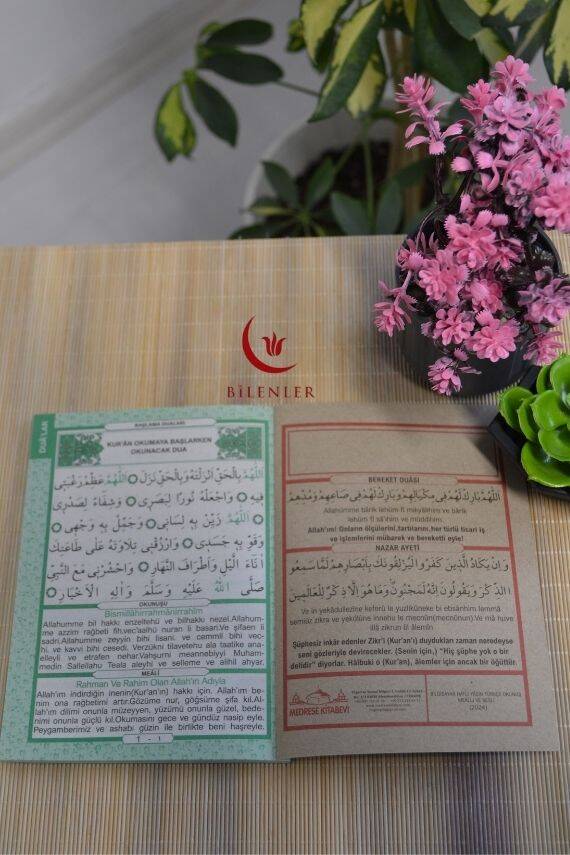 BİLENLER
DUALAR
BAŞLAMA DUALARI
KUR'ÂN OKUMAYA BAŞLARKEN
OKUNACAK DUA
اَللّٰهُمَّ بِالْحَقِّ اَنْزَلْتَهُ وَبِالْحَقِّ نَزَلَ اَللّٰهُمَّ عَظِّمْ رَغْبَتِى
فِيهِ وَاجْعَلْهُ نُورًا لِبَصَرِى وَشِفَاءً لِصَدْرِى
اَللّٰهُمَّ زَيِّنْ بِهِ لِسَانِى وَجَمِّلْ بِهِ وَجْهِى
وَقَوِّ بِهِ جَسَدِى وَارْزُقْنِى تِلَاوَتَهُ عَلٰى طَاعَتِكَ
اٰنَاءَ الَّيْلِ وَاَطْرَافَ النَّهَارِ وَاحْشُرْنِى مَعَ النَّبِىِّ
صَلَّى اللهُ عَلَيْهِ وَسَلَّمَ وَاٰلِهِ الْاَخْيَارِ
OKUNUŞU
Bismillâhirrahmânirrahîm
Allahumme bil hakkı enzeltehü ve bilhakkı nezel.Allahum-
me azzim rağbeti fih.vec'aalhü nuran li basari.Ve şifaen li
sadri.Allahumme zeyyin bihi lisani. ve cemmil bihi vec-
hi, ve kavvi bihi cesedi. Verzükni tilavetehu ala taatike ana-
elleyli ve etrafen nehar.Vahşurni meannebiyyi Muham-
medin Sallellahu Teala aleyhi ve selleme ve alihil ahyar.
MEÂLİ
Rahman Ve Rahim Olan Allah'ın Adıyla
Allah'ım indirdiğin inenin(Kur'an'ın) hakkı için. Allah'ım be-
nim ona rağbetimi artır.Gözüme nur, göğsüme şifa kıl.Al-
lah'ım dilimi onunla müzeyyen, yüzümü onunla güzel, bede-
nimi onunla güçlü kıl.Okumasını gece ve gündüz nasip eyle.
Peygamberimiz ve ashabı güzin ile birlikte beni haşreyle.
1 - ١
BEREKET DUÂSI
اَللّٰهُمَّ بَارِكْ لَهُمْ فِى مِكْيَالِهِمْ وَبَارِكْ لَهُمْ فِى صَاعِهِمْ وَمُدِّهِمْ
Allahümme bârik lehüm fî mikyâlihim ve bârik
lehüm fî sâ'ihim ve müddihim.
Allah'ım! Onların ölçülerini,tartılarını,her türlü ticari iş
ve işlemlerini mübarek ve bereketli eyle!
NAZAR AYETİ
وَاِنْ يَكَادُ الَّذِينَ كَفَرُوا لَيُزْلِقُونَكَ بِاَبْصَارِهِمْ لَمَّا سَمِعُوا
الذِّكْرَ وَيَقُولُونَ اِنَّهُ لَمَجْنُونٌ وَمَا هُوَ اِلَّا ذِكْرٌ لِلْعَالَمِينَ
Ve in yekâdüllezine keferû le yuzlikûneke bi ebsârihim lemmâ
semiûz zikra ve yekûlûne innehû le mecnûn(mecnûnun) Ve mâ huve
illâ zikrun lil âlemîn
Şüphesiz inkâr edenler Zikr'i (Kur'an'ı) duydukları zaman neredeyse
seni gözleriyle devirecekler. (Senin için,) "Hiç şüphe yok o bir
delidir" diyorlar. Hâlbuki o (Kur'an), âlemler için ancak bir öğüttür.
MEDRESE KİTABEVİ
(2024)